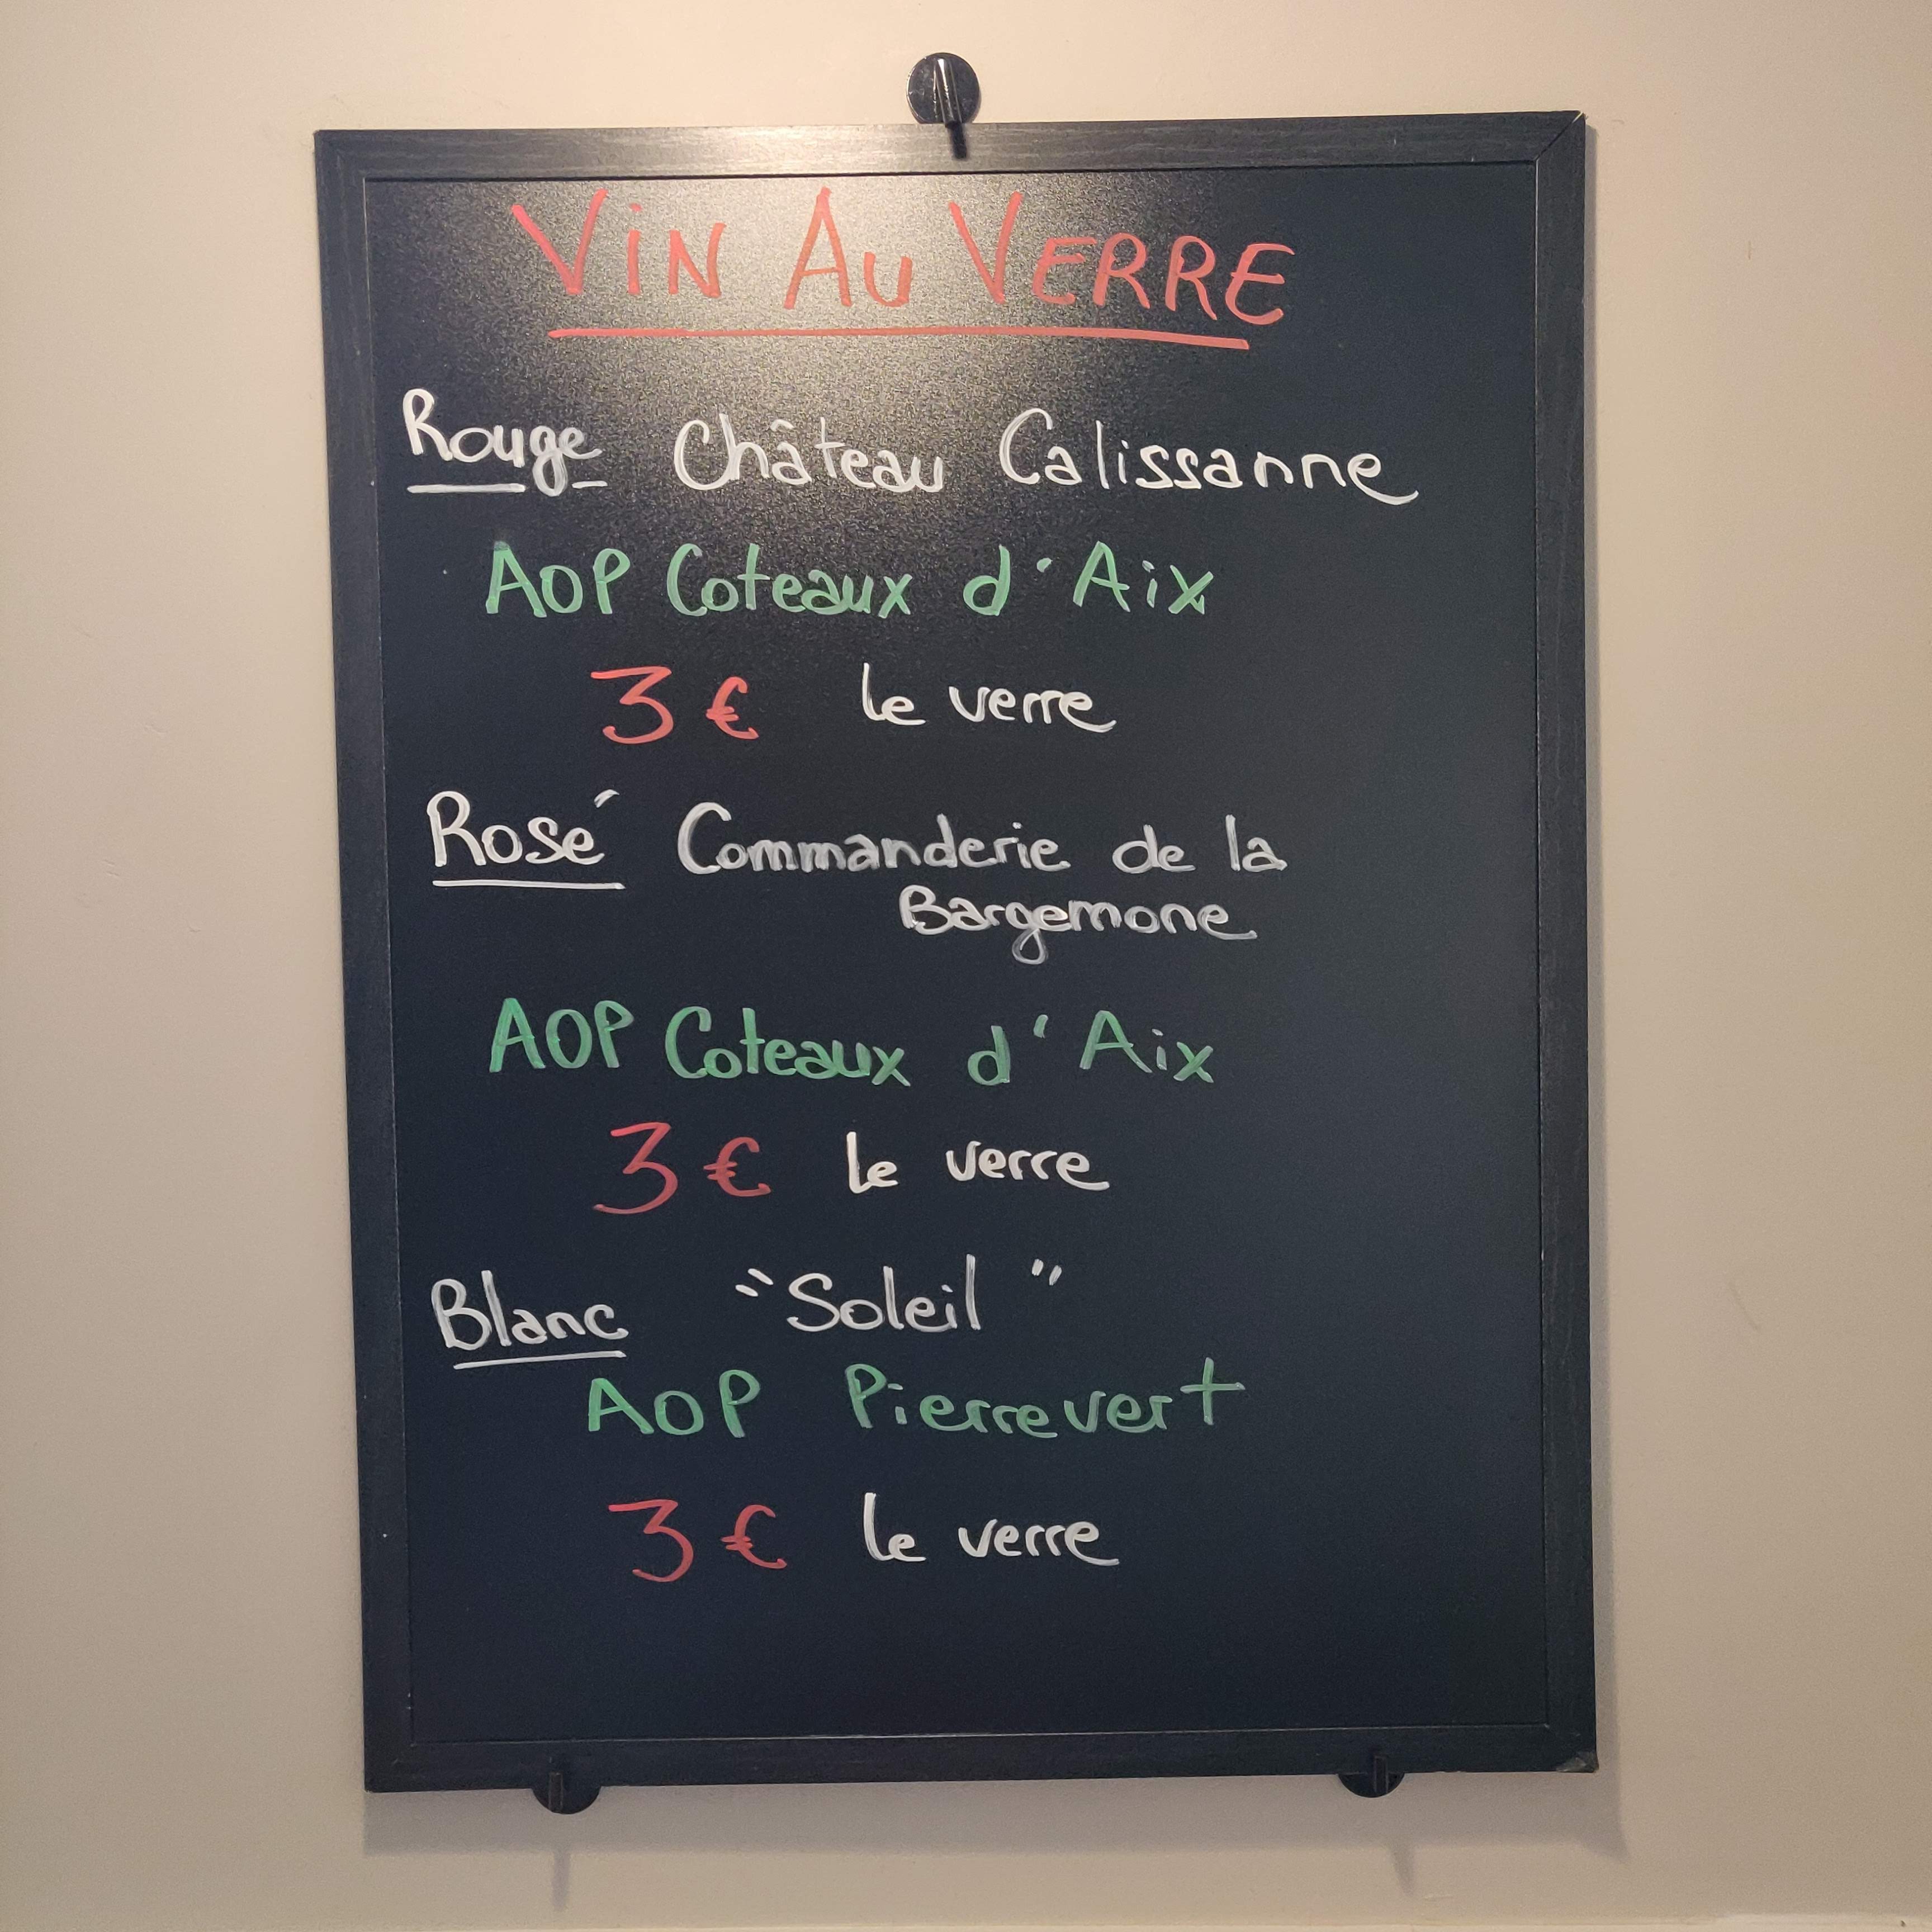 VIN AU VERRE
Rouge Château Calissanne
AOP Coteaux d'Aix
3 € le verre
Rosé Commanderie de la
Bargemone
AOP Coteaux d'Aix
3 € le verre
Blanc "Soleil"
AOP Pierrevert
3 € le verre